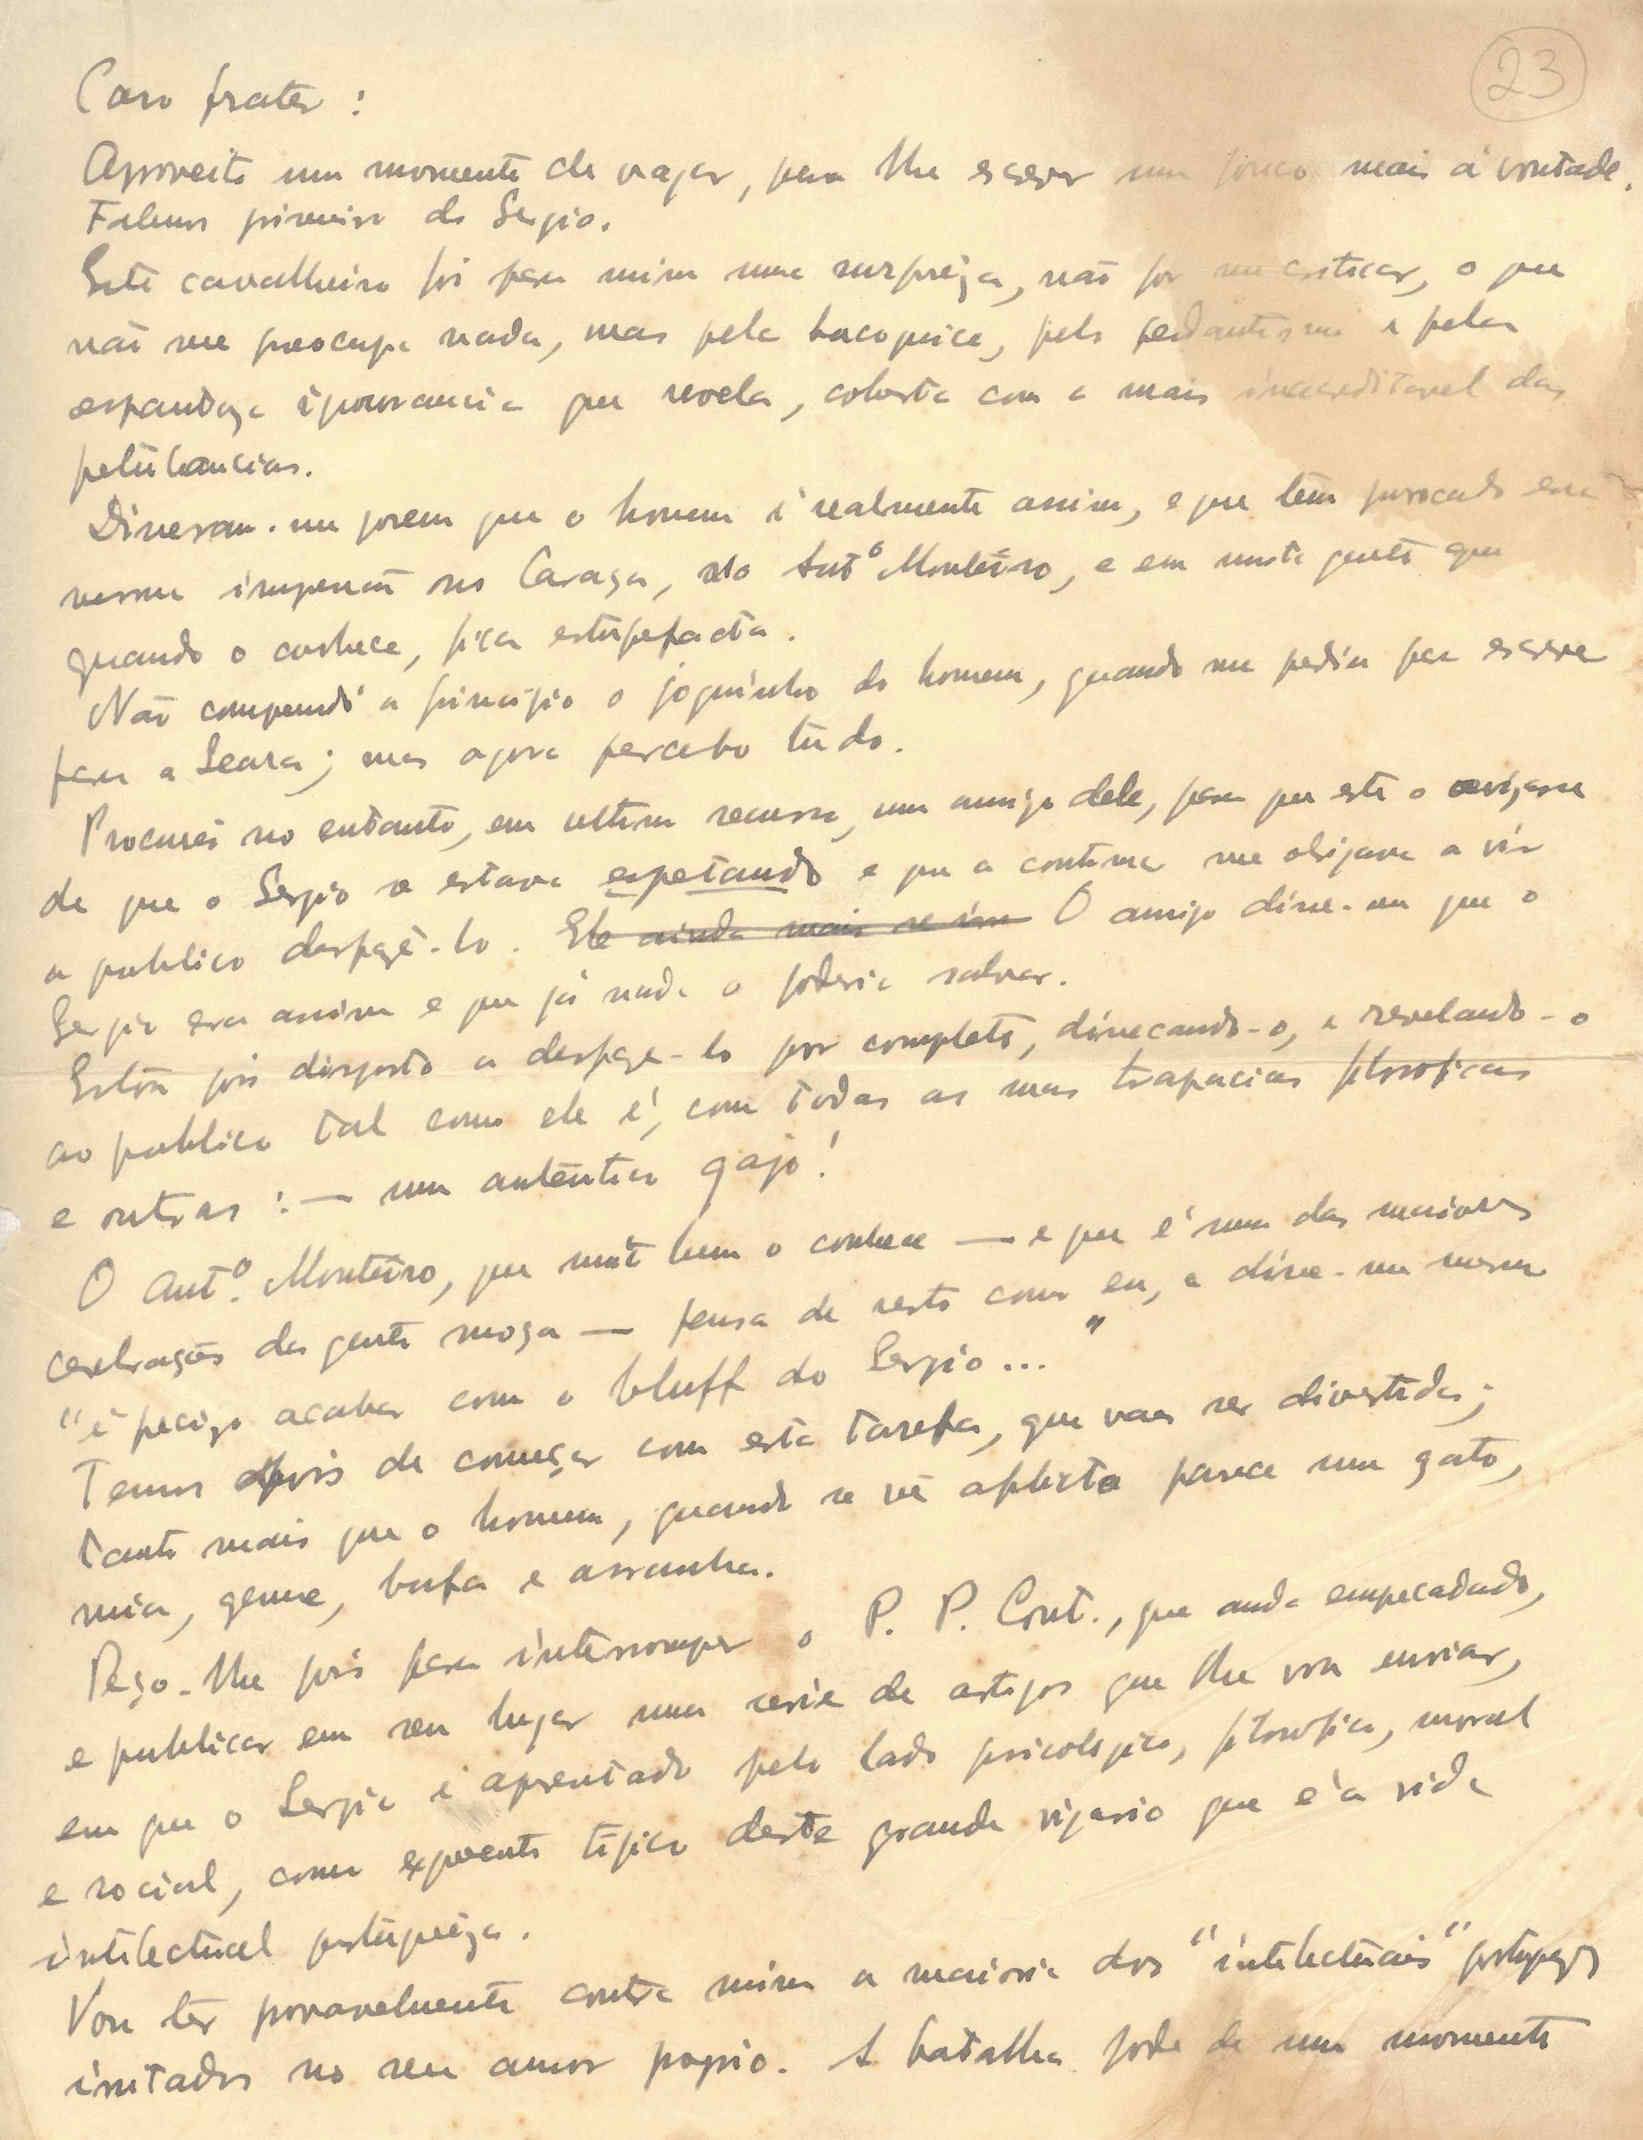 23
Caro frater:
Aproveito um momento de vagar, para lhe escrever um pouco mais á vontade.
Falemos primeiro do Sergio.
Este cavalheiro foi para mim uma surpreza, não por me criticar, o que
não me preocupa nada, mas pela bacoquice, pelo pedantismo e pela
espantoza ignorancia que revela, coberta com a mais inacreditavel das
petulancias.
Disseram-me porem que o homem é realmente assim, e que tem provocado essa
mesma impressão no Caraça, no Antº Monteiro, e em muita gente que
quando o conhece, fica estupefacta.
Não compreendi a principio o joguinho do homem, quando me pedia para escrever
para a Seara; mas agora percebo tudo.
Procurei no entanto, em ultimo recurso, um amigo dele, para que este o avisasse
de que o Sergio se estava espetando e que a continuar me obrigava a vir
a publico desfazê-lo. Ele ainda mais se O amigo disse-me que o
Sergio era assim e que já nada o poderia salvar.
Estou pois disposto a desfaze-lo por completo, dissecando-o, e revelando-o
ao publico tal como ele é, com todas as suas trapacias filosoficas
e outras: — um autêntico gajo!
O Antº. Monteiro, que muito bem o conhece — e que é uma das maiores
cerebrações da gente moça — pensa de resto como eu, e disse-me mesmo
"é preciso acabar com o bluff do Sergio..."
Temos depois de começar com esta tarefa, que vae ser divertida;
tanto mais que o homem, quando se vê aflicto parece um gato,
mia, geme, bufa e arranha.
Peço-lhe pois para interromper o P. P. Cont., que anda empecadado,
e publicar em seu lugar uma serie de artigos que lhe vou enviar,
em que o Sergio é apresentado pelo lado psicologico, filosofico, moral
e social, como expoente tipico deste grande vigario que é a vida
intelectual portugueza.
Vou ter provavelmente contra mim a maioria dos "intelectuais" portuguezes
irritados no seu amor proprio. A batalha pode de um momento